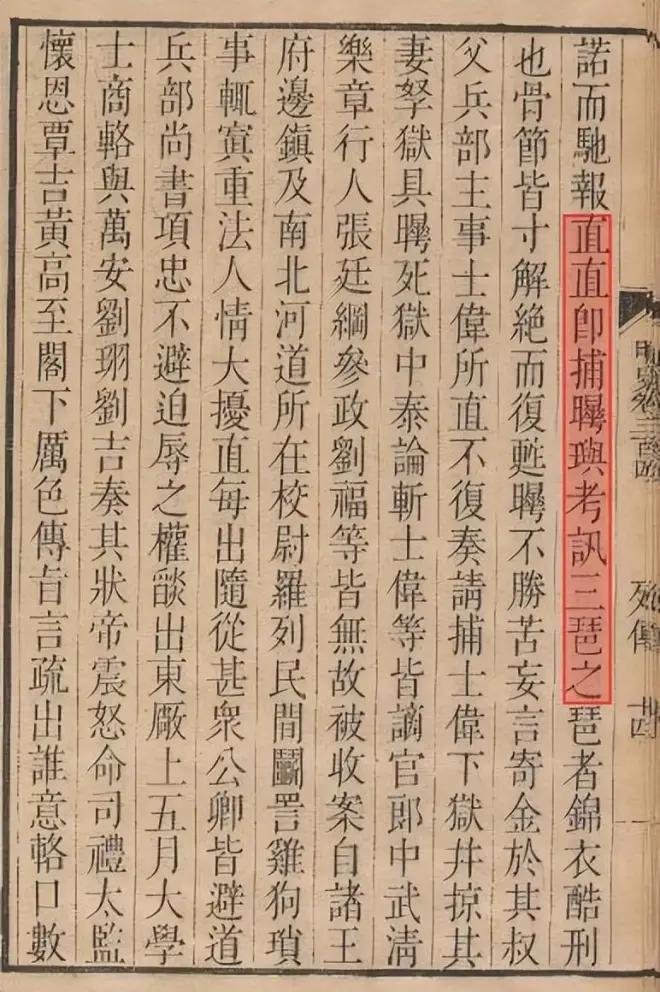 諾而馳報直直卽捕曄璵考訊三琶之琶者錦衣酷刑
也骨節皆寸解絕而復甦曄不勝苦妄言寄金於其叔
父兵部主事士偉所直不復奏請捕士偉下獄幷掠其
妻孥獄具曄死獄中泰論斬士偉等皆謫官郞中武淸
樂章行人張廷綱參政劉福等皆無故被收案自諸王
府邊鎮及南北河道所在校尉羅列民間鬭詈雞狗瑣
事輒寘重法人情大擾直每出隨從甚衆公卿皆避道
兵部尚書項忠不避迫辱之權燄出東廠上五月大學
士商輅與萬安劉珝劉吉奏其狀帝震怒命司禮太監
懷恩覃吉黃高至閣下厲色傳旨言疏出誰意輅口數